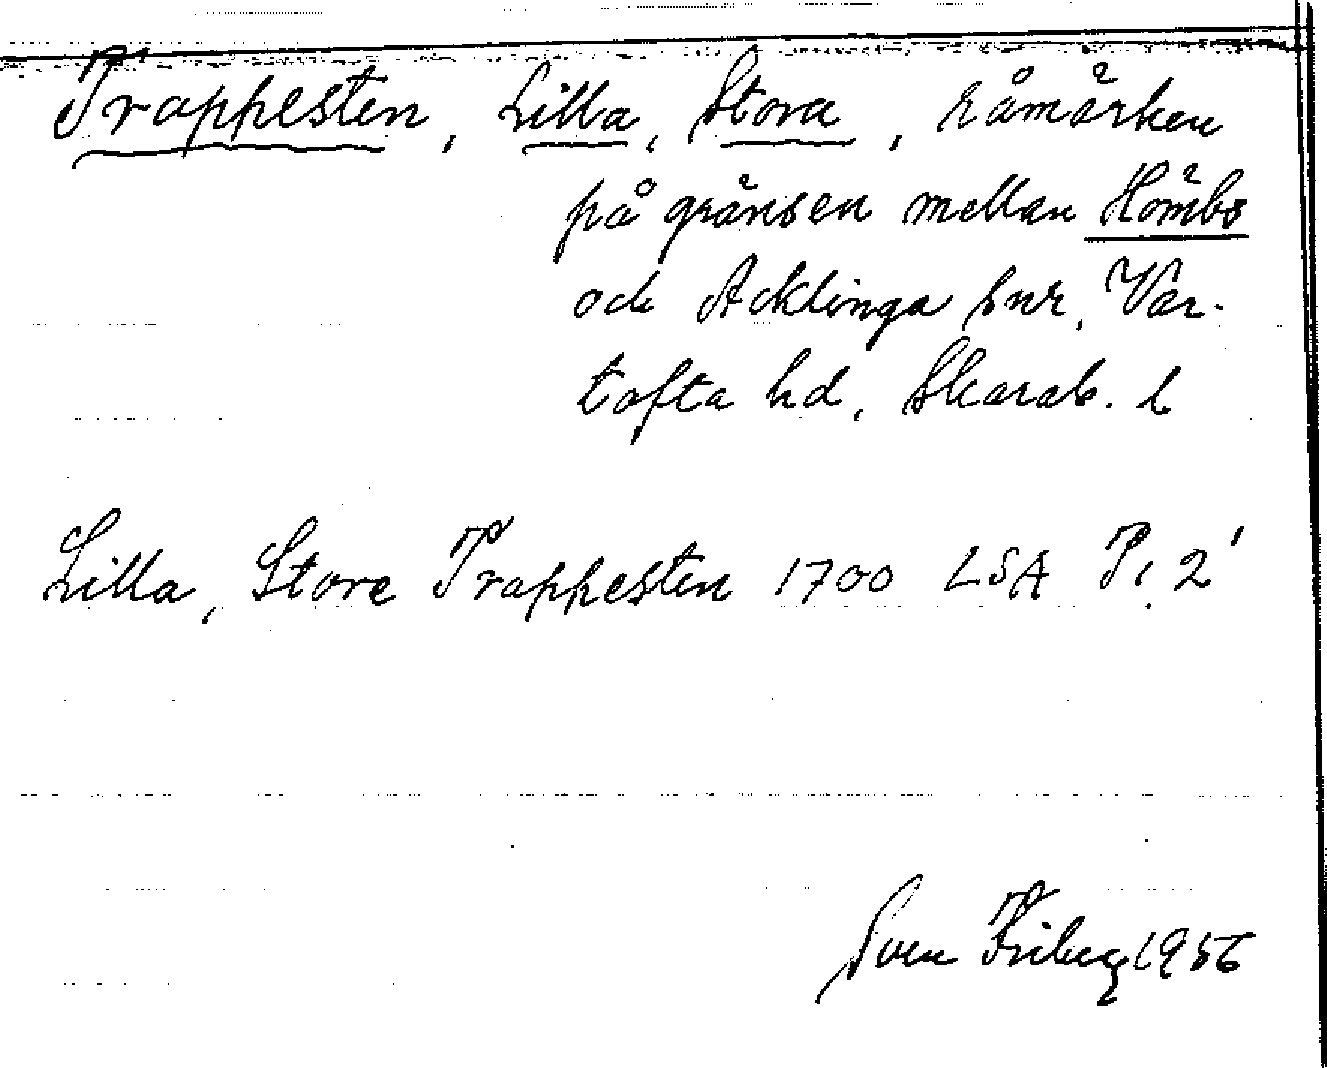 Trappesten, Lilla, Stora, råmärken
på gränsen mellan Hömbs
och Acklinga snr, Var-
tofta hd, Skarab. l
Lilla, Store Trappesten 1700 LSA P: 2'
Sven Friberg 1956